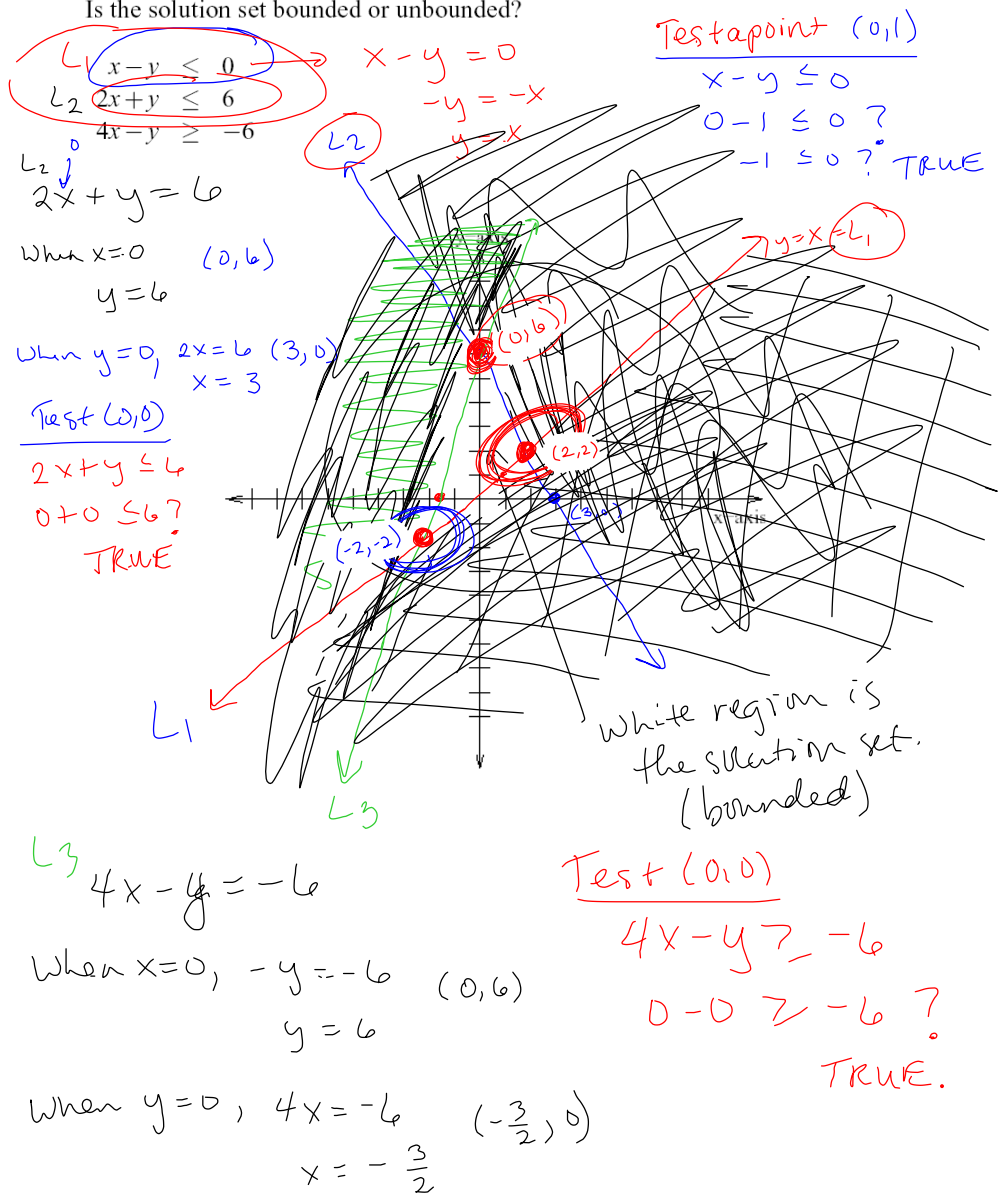 Is the solution set bounded or unbounded?
L1 x−y ≤ 0
L2 2x+y ≤ 6
4x−y ≥ −6
x − y = 0
−y = −x
y = x
Test a point (0,1)
x − y ≤ 0
0 − 1 ≤ 0 ?
−1 ≤ 0 ? TRUE
L2
0
2x + y = 6
When x=0 (0,6)
y = 6
When y=0, 2x=6 (3,0)
x = 3
Test (0,0)
2x+y ≤ 6
0+0 ≤6?
TRUE
L2
y=x=L1
(0,6)
(2,2)
(3,0)
x−axis
(-2,-2)
L1
L3
White region is
the solution set.
(bounded)
L3
4x − y = −6
When x=0, −y = −6 (0,6)
y = 6
When y=0, 4x = −6 (−3/2, 0)
x = − 3/2
Test (0,0)
4x − y ≥ −6
0 − 0 ≥ −6 ?
TRUE.